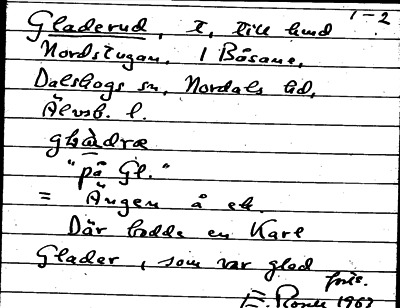 1-2
Gladerud, t, till hmd
Nordstugan, i Båsane,
Dalskogs sn, Nordals hd,
Älvsb. l.
glàdræ
"på Gl."
= Ängen å ek.
Där bodde en Karl
Glader, som var glad
förr.
1967